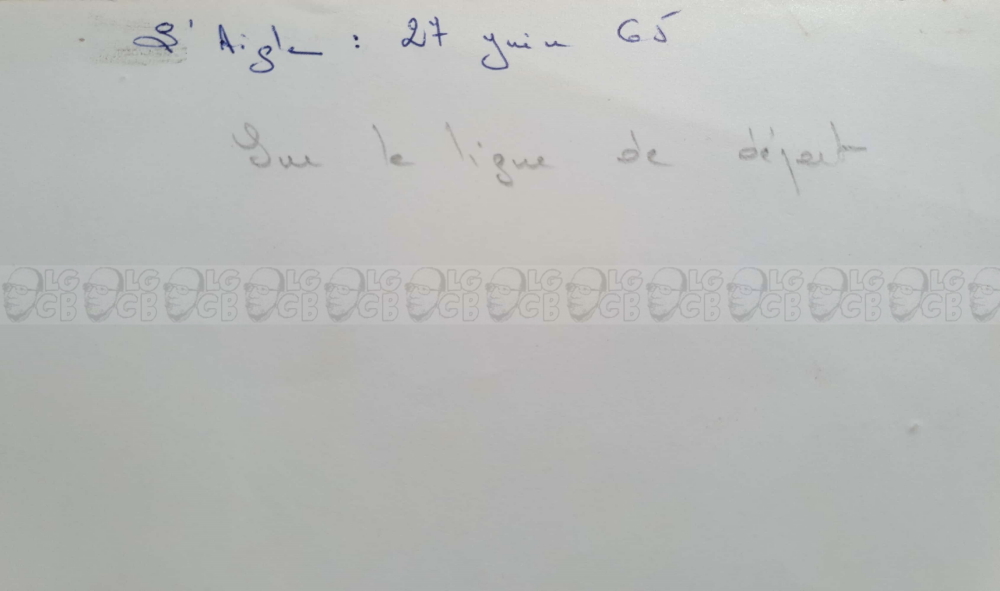 L'Aigle : 27 juin 65
Sur la ligne de départ
LG CB LG CB LG CB LG CB LG CB LG CB LG CB LG CB LG CB LG CB LG CB LG CB